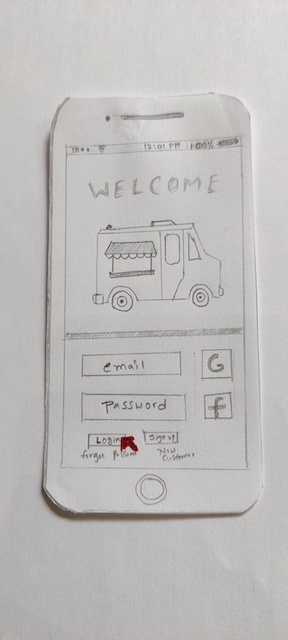 12:01 PM 100%
WELCOME
email
G
Password
f
Login Sign up
forgot New
Customer